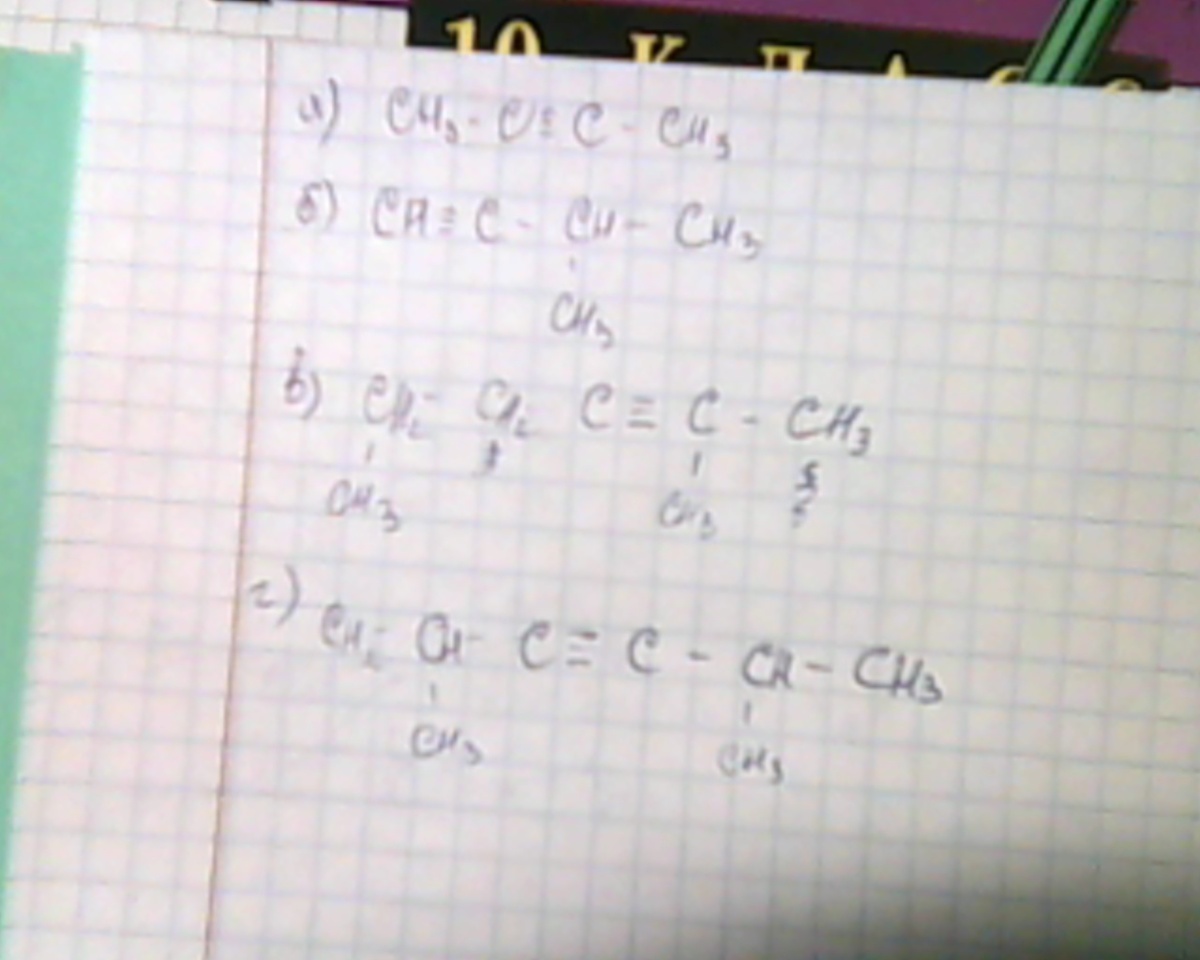 10 КЛАСС
а) CH₃ - C ≡ C - CH₃
б) CH ≡ C - CH - CH₃
CH₃
в) CH₂ - CH₂ C ≡ C - CH₃
CH₃ CH₃
г) CH₂ - CH - C ≡ C - CH - CH₃
CH₃ CH₃